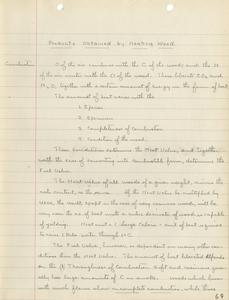 Products Obtained by Heating Wood.
Combustion O of the air combines with the C of the wood; and the O
of the air unites with the H of the wood. These liberate CO2 and
H2O, together with a certain amount of energy in the form of heat.
The amount of heat varies with the
1. Species
2. Specimen
3. Completeness of Combustion
4. Condition of the wood.
These conditions determine the Heat Value, and together
with the ease of converting into combustible form, determine the
Fuel Value.
The Heat Value of all woods of a given weight, minus the
content, is the same.
used, the result, except in the case of very resinous woods, will be
very near the no. of heat units a
of yielding. Heat unit = Large Calorie = unit of heat required
to raise 1 kilo water through 1° C.
The Fuel Value, however, is dependent on many other con-
ditions than the Heat Value. The amount of heat liberated depends
on the (1) Thoroughness of Combustion. Soft and resinous gener-
ally lose large amounts of C in smoke. Woods which burn
with much flame show incomplete combustion, while those
69